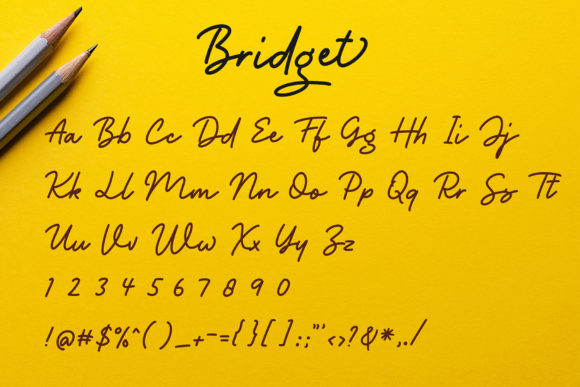 Bridget
Aa Bb Cc Dd Ee Ff Gg Hh Ii Jj
Kk Ll Mm Nn Oo Pp Qq Rr Ss Tt
Uu Vv Ww Xx Yy Zz
1 2 3 4 5 6 7 8 9 0
!@#$%^()_+-={}[]:;"'<>?&*,./